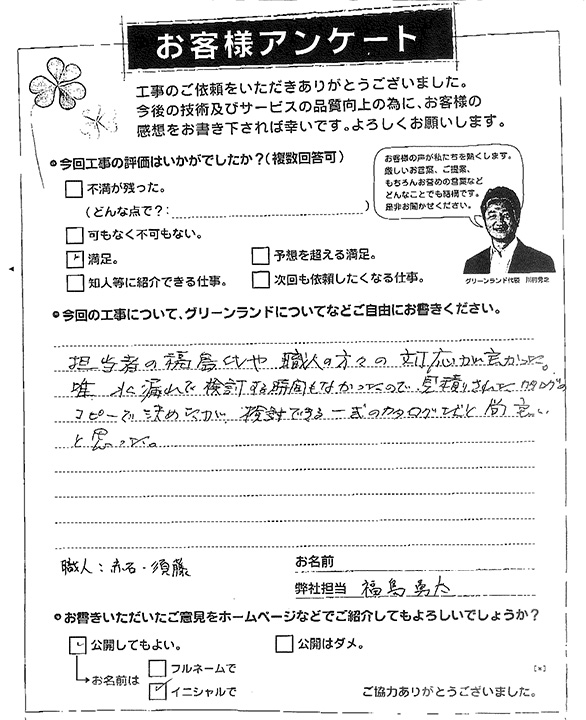 お客様アンケート
工事のご依頼をいただきありがとうございました。
今後の技術及びサービスの品質向上の為に、お客様の
感想をお書き下されば幸いです。よろしくお願いします。
今回工事の評価はいかがでしたか?(複数回答可)
不満が残った。
(どんな点で?: )
可もなく不可もない。
満足。
予想を超える満足。
知人等に紹介できる仕事。
次回も依頼したくなる仕事。
お客様の声が私たちを熱くします。
厳しいお言葉、ご提案、
もちろんお誉めの言葉など
どんなことでも結構です。
是非お聞かせください。
グリーンランド代表
今回の工事について、グリーンランドについてなどご自由にお書きください。
担当者の福島くんや職人の方々の対応が良かった。
唯 水漏れで検討する時間もなかったので、見積りされたカタログの
コピーで決めたが、検討できる一式のカタログだと尚良い
と思った。
職人:赤石・須藤
お名前
弊社担当 福島勇太
お書きいただいたご意見をホームページなどでご紹介してもよろしいでしょうか?
公開してもよい。
公開はダメ。
お名前は
フルネームで
イニシャルで
ご協力ありがとうございました。